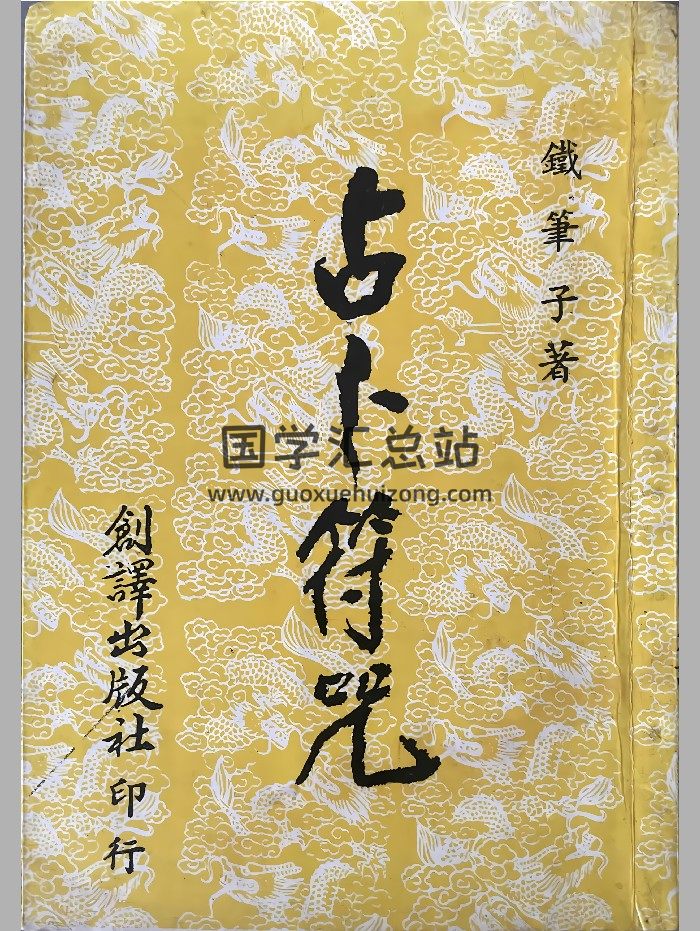 鐵筆子著
占卜符咒
創譯出版社印行
国学汇总站
www.guoxuehuizong.com